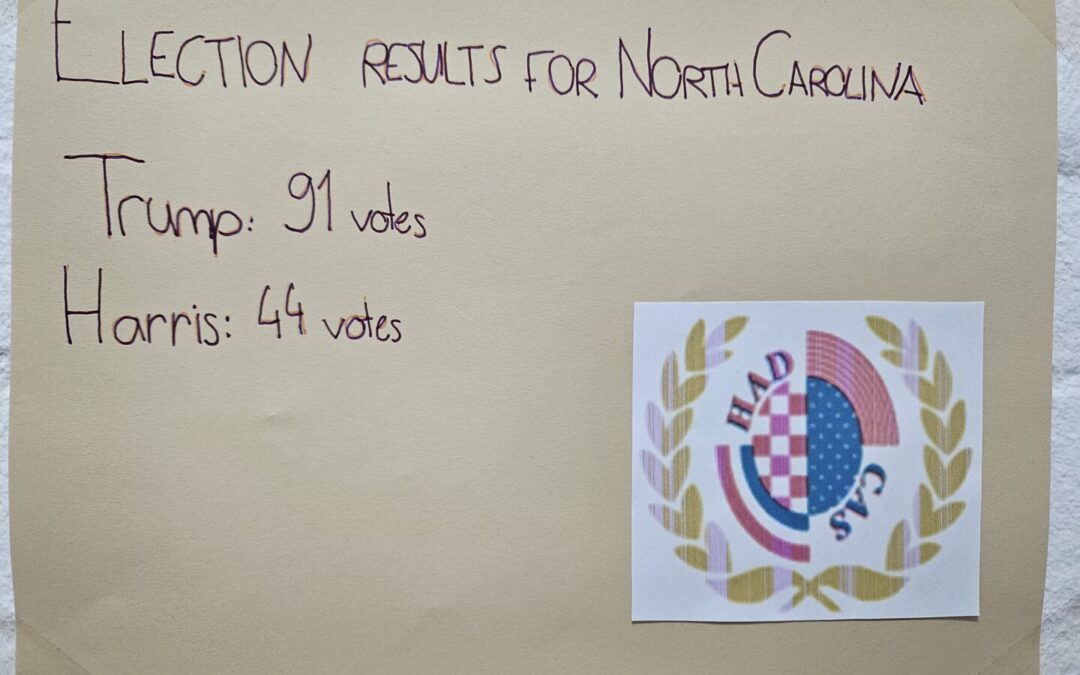 ELECTION RESULTS FOR NORTH CAROLINA
Trump: 91 votes
Harris: 44 votes
HAD
CAS